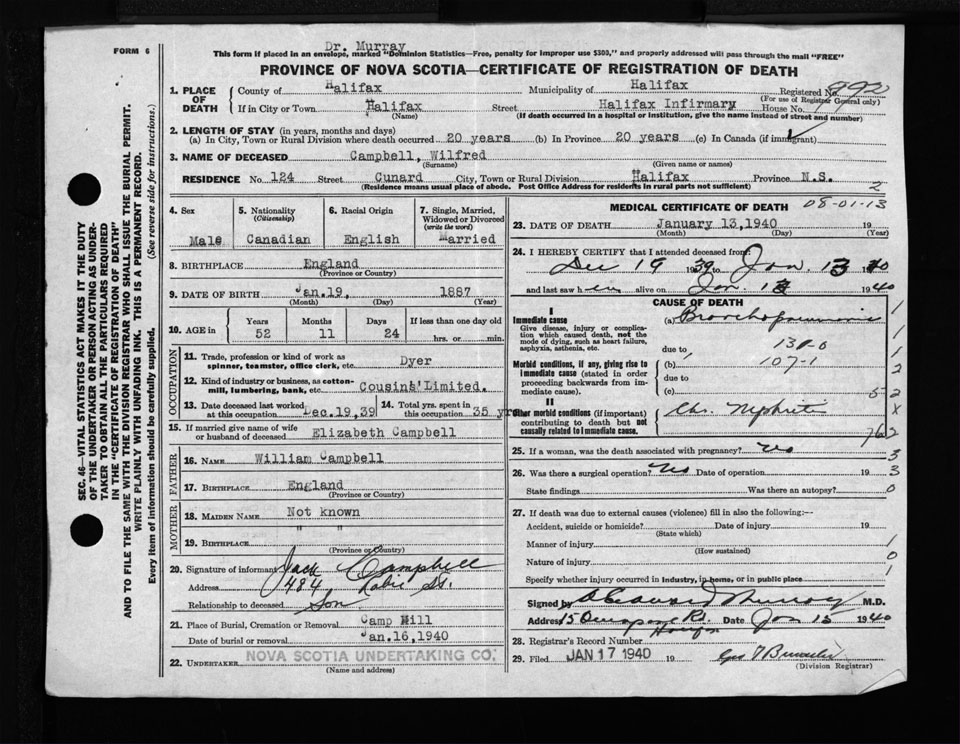 FORM 6
Dr. Murray
This form if placed in an envelope, marked "Dominion Statistics—Free, penalty for improper use $300," and properly addressed will pass through the mail "FREE"
PROVINCE OF NOVA SCOTIA—CERTIFICATE OF REGISTRATION OF DEATH
1. PLACE OF DEATH
County of Halifax Municipality of Halifax Registered No.
(For use of Registrar General only)
If in City or Town Halifax Street Halifax Infirmary House No.
(Name) (If death occurred in a hospital or institution, give the name instead of street and number)
2. LENGTH OF STAY (in years, months and days)
(a) In City, Town or Rural Division where death occurred 20 years (b) In Province 20 years (c) In Canada (if immigrant)
3. NAME OF DECEASED Campbell, Wilfred
(Surname) (Given name or names)
RESIDENCE No. 124 Street Cunard City, Town or Rural Division Halifax Province N.S.
(Residence means usual place of abode. Post Office Address for residents in rural parts not sufficient)
2
4. Sex
Male
5. Nationality
(Citizenship)
Canadian
6. Racial Origin
English
7. Single, Married, Widowed or Divorced
(write the word)
Married
8. BIRTHPLACE England
(Province or Country)
9. DATE OF BIRTH Jan.19, 1887
(Month) (Day) (Year)
10. AGE in
Years Months Days If less than one day old
52 11 24 hrs. or min.
OCCUPATION
11. Trade, profession or kind of work as spinner, teamster, office clerk, etc. Dyer
12. Kind of industry or business, as cotton-mill, lumbering, bank, etc. Cousins' Limited.
13. Date deceased last worked at this occupation Dec.19,39
14. Total yrs. spent in this occupation 35 yrs
15. If married give name of wife or husband of deceased Elizabeth Campbell
FATHER
16. NAME William Campbell
17. BIRTHPLACE England
(Province or Country)
MOTHER
18. MAIDEN NAME Not known
19. BIRTHPLACE " "
(Province or Country)
20. Signature of informant Jack Campbell
Address 484 Robie St.
Relationship to deceased Son
21. Place of Burial, Cremation or Removal Camp Hill
Date of burial or removal Jan.16,1940
22. UNDERTAKER NOVA SCOTIA UNDERTAKING CO.
(Name and address)
MEDICAL CERTIFICATE OF DEATH 08-01-13
23. DATE OF DEATH January 13,1940 19
(Month) (Day) (Year)
24. I HEREBY CERTIFY that I attended deceased from
Dec 19 1939 to Jan. 13 1940
and last saw him alive on Jan. 1940
CAUSE OF DEATH
I
Immediate cause
Give disease, injury or complication which caused death, not the mode of dying, such as heart failure, asphyxia, asthenia, etc.
(a) Bronchopneumonia
due to
Morbid conditions, if any, giving rise to immediate cause (stated in order proceeding backwards from immediate cause).
(b) 107-1
due to
(c)
II
Other morbid conditions (if important) contributing to death but not causally related to immediate cause.
Chr. Nephritis
25. If a woman, was the death associated with pregnancy?
26. Was there a surgical operation? No Date of operation 19
State findings Was there an autopsy?
27. If death was due to external causes (violence) fill in also the following:—
Accident, suicide or homicide? Date of injury 19
(State which)
Manner of injury
(How sustained)
Nature of injury
Specify whether injury occurred in industry, in home, or in public place
Signed by Murray M.D.
Address Date Jan 1940
28. Registrar's Record Number
29. Filed JAN 17 1940 19
(Division Registrar)
SEC. 46—VITAL STATISTICS ACT MAKES IT THE DUTY OF THE UNDERTAKER OR PERSON ACTING AS UNDERTAKER TO OBTAIN ALL THE PARTICULARS REQUIRED IN THE "CERTIFICATE OF REGISTRATION OF DEATH" AND TO FILE THE SAME WITH THE DIVISION REGISTRAR WHO SHALL ISSUE THE BURIAL PERMIT.
WRITE PLAINLY WITH UNFADING INK. THIS IS A PERMANENT RECORD.
Every item of information should be carefully supplied. (See reverse side for instructions.)